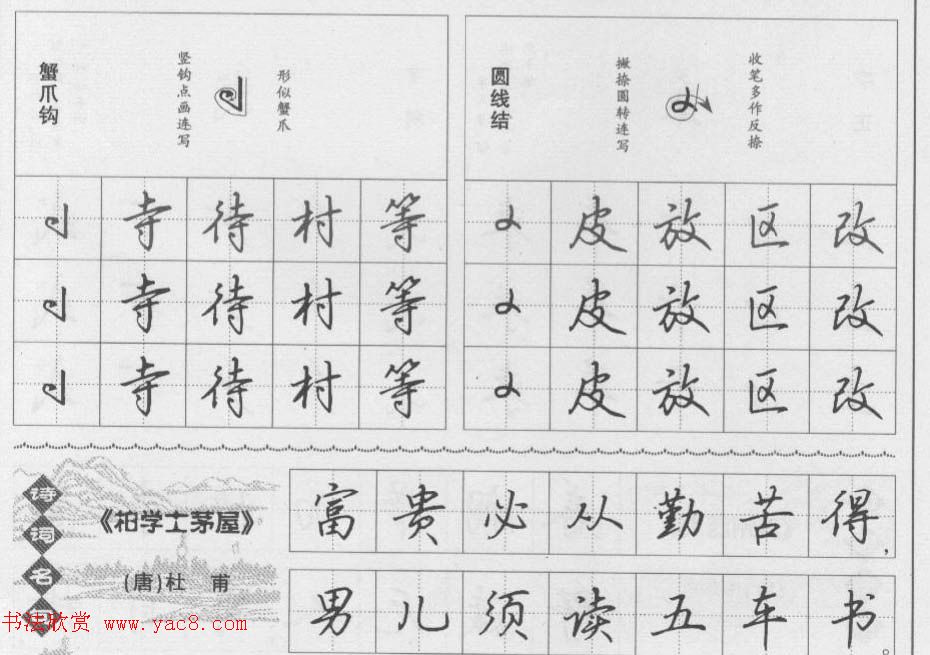 蟹爪钩
竖钩点画连写
形似蟹爪
寺 待 村 等
寺 待 村 等
寺 待 村 等
圆线结
撇捺圆转连写
收笔多作反捺
皮 放 区 改
皮 放 区 改
皮 放 区 改
诗词名
《柏学士茅屋》
(唐)杜 甫
富贵必从勤苦得,
男儿须读五车书。
书法欣赏 www.yac8.com